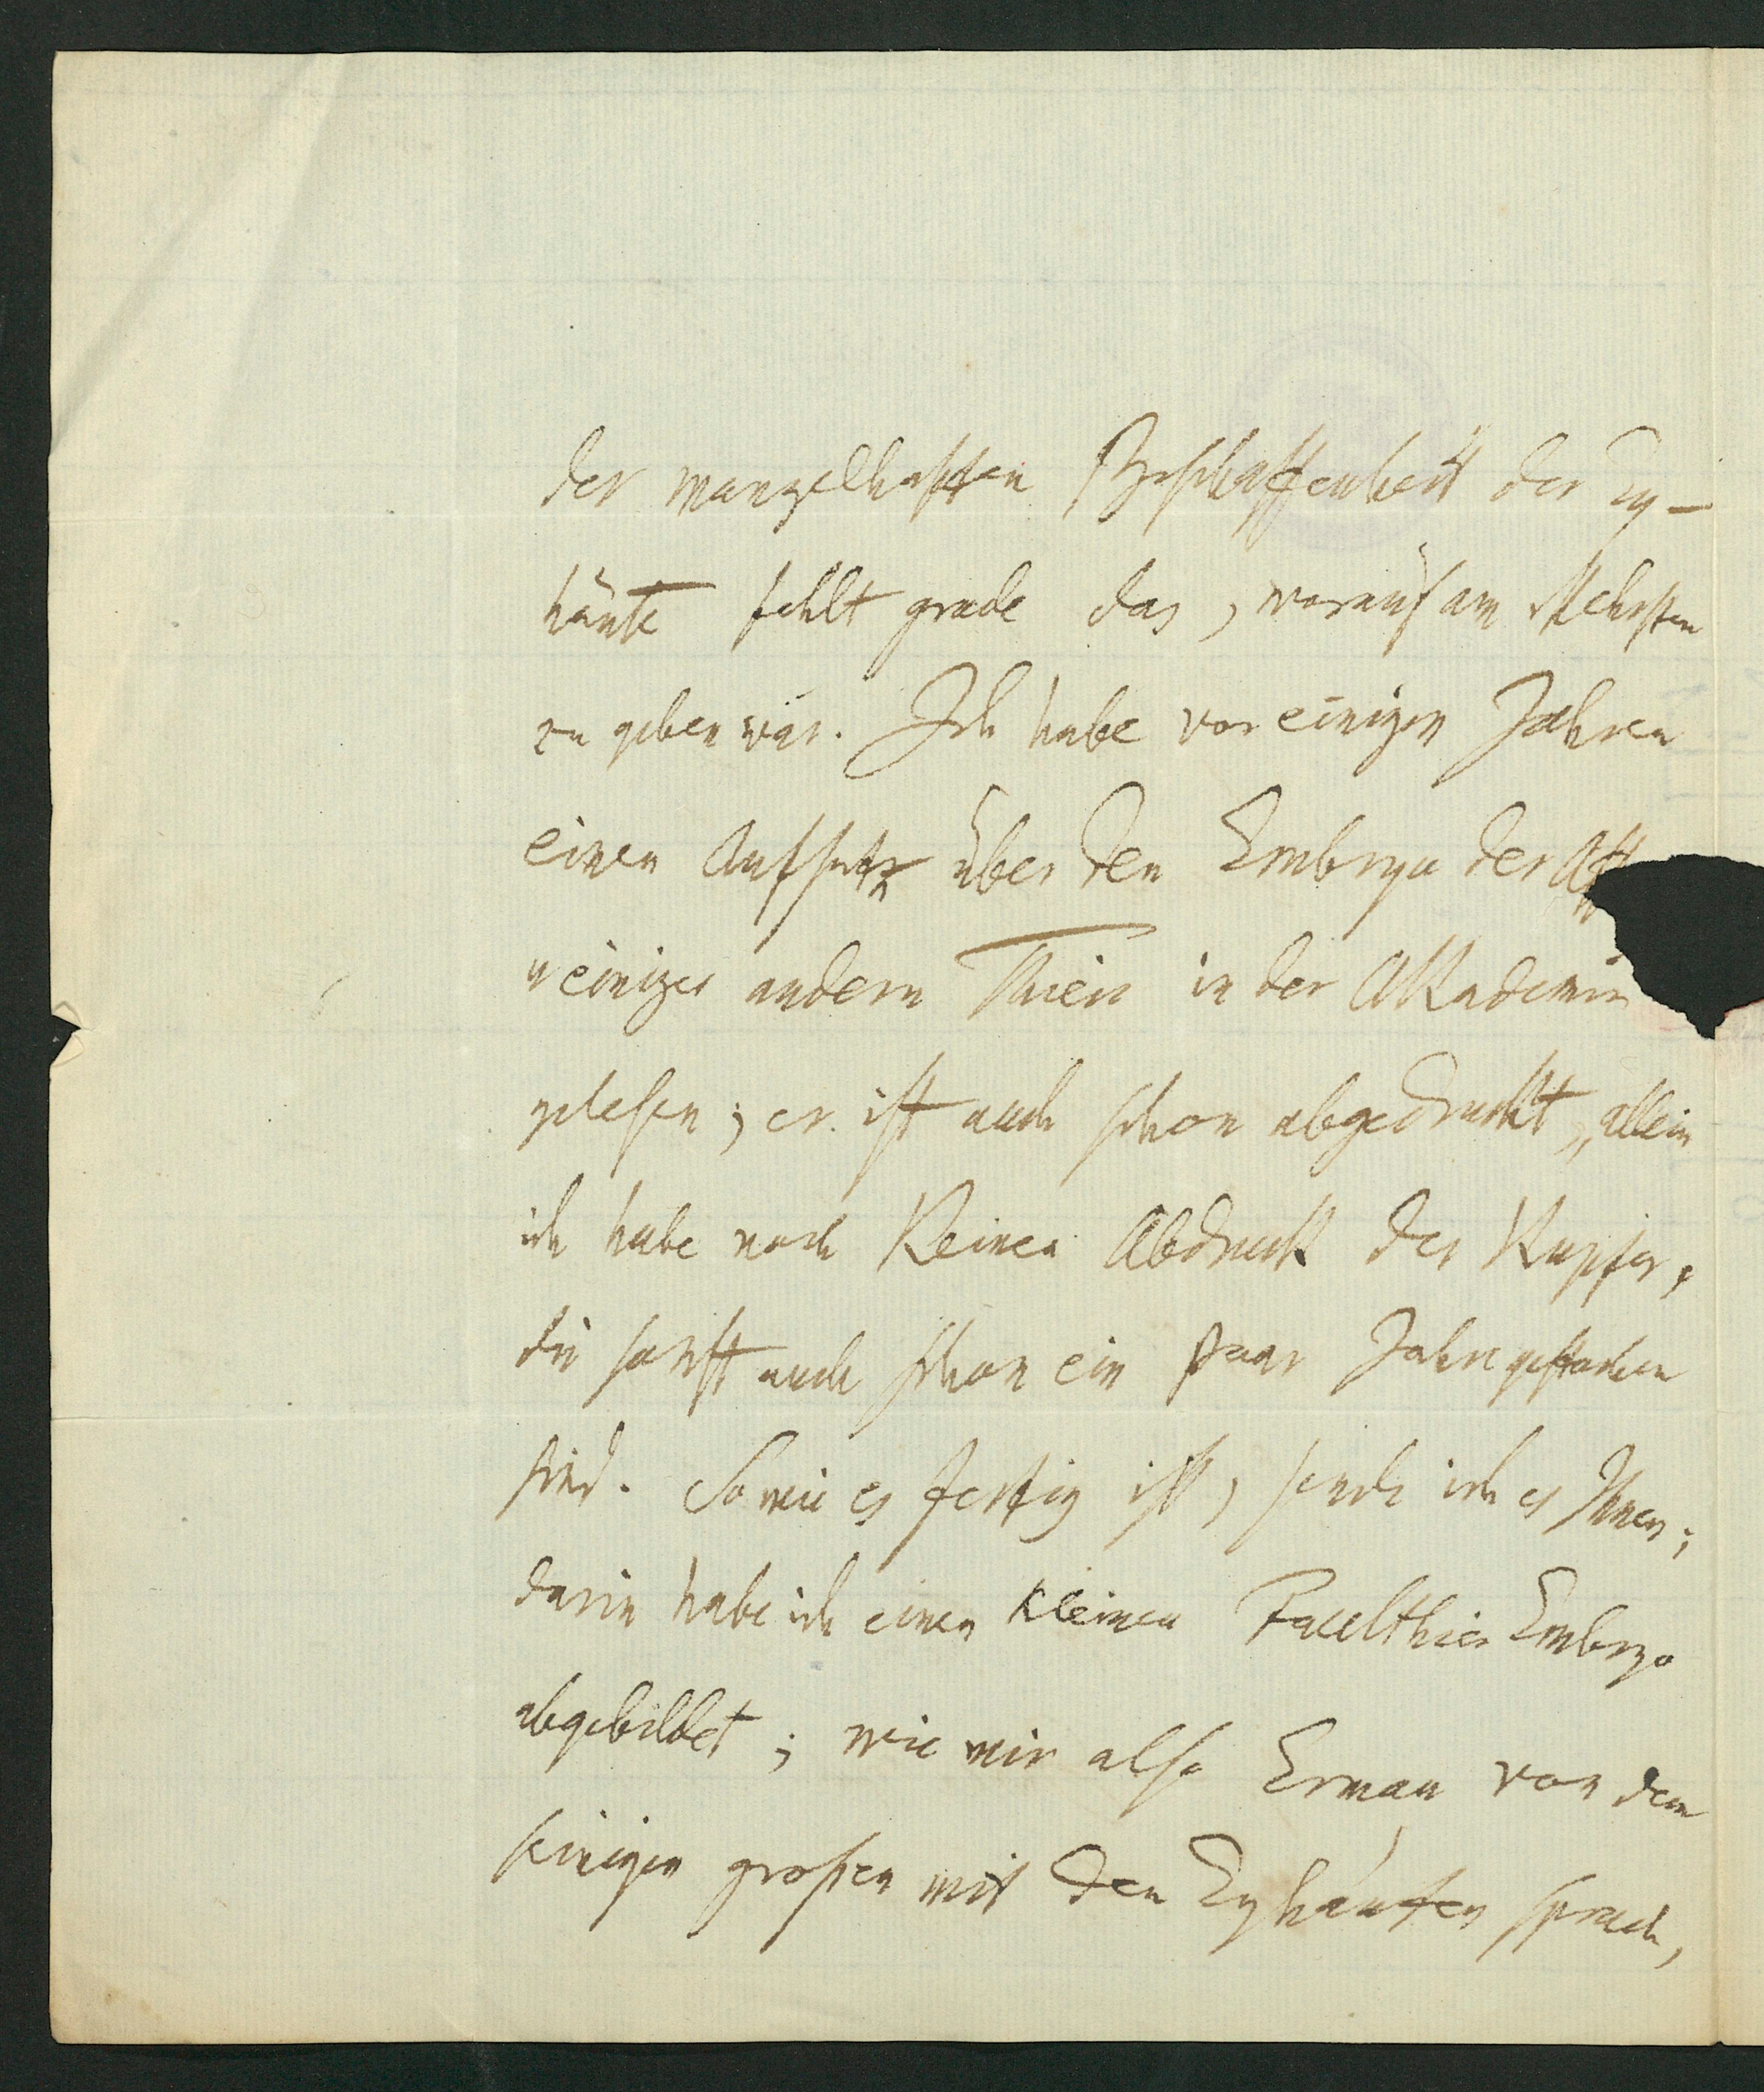 der mangelhaften Beschaffenheit der Ey-
häute fehlt grade das, worauf am Mehrsten
zu geben wär. Ich habe vor einigen Jahren
einen Aufsatz über den Embryo der Aff
u einiger andern Thiere in der Akademie
gelesen; er ist auch schon abgedruckt, allein
ich habe noch keinen Abdruck der Kupfer,
die sonst auch schon ein Paar Jahre gestochen
sind. So wie es fertig ist, sende ich es Ihnen;
darin habe ich einen kleinen Faulthier Embryo
abgebildet; wie mir also Erman von dem
seinigen großen mit den Eyhäuten sprach,